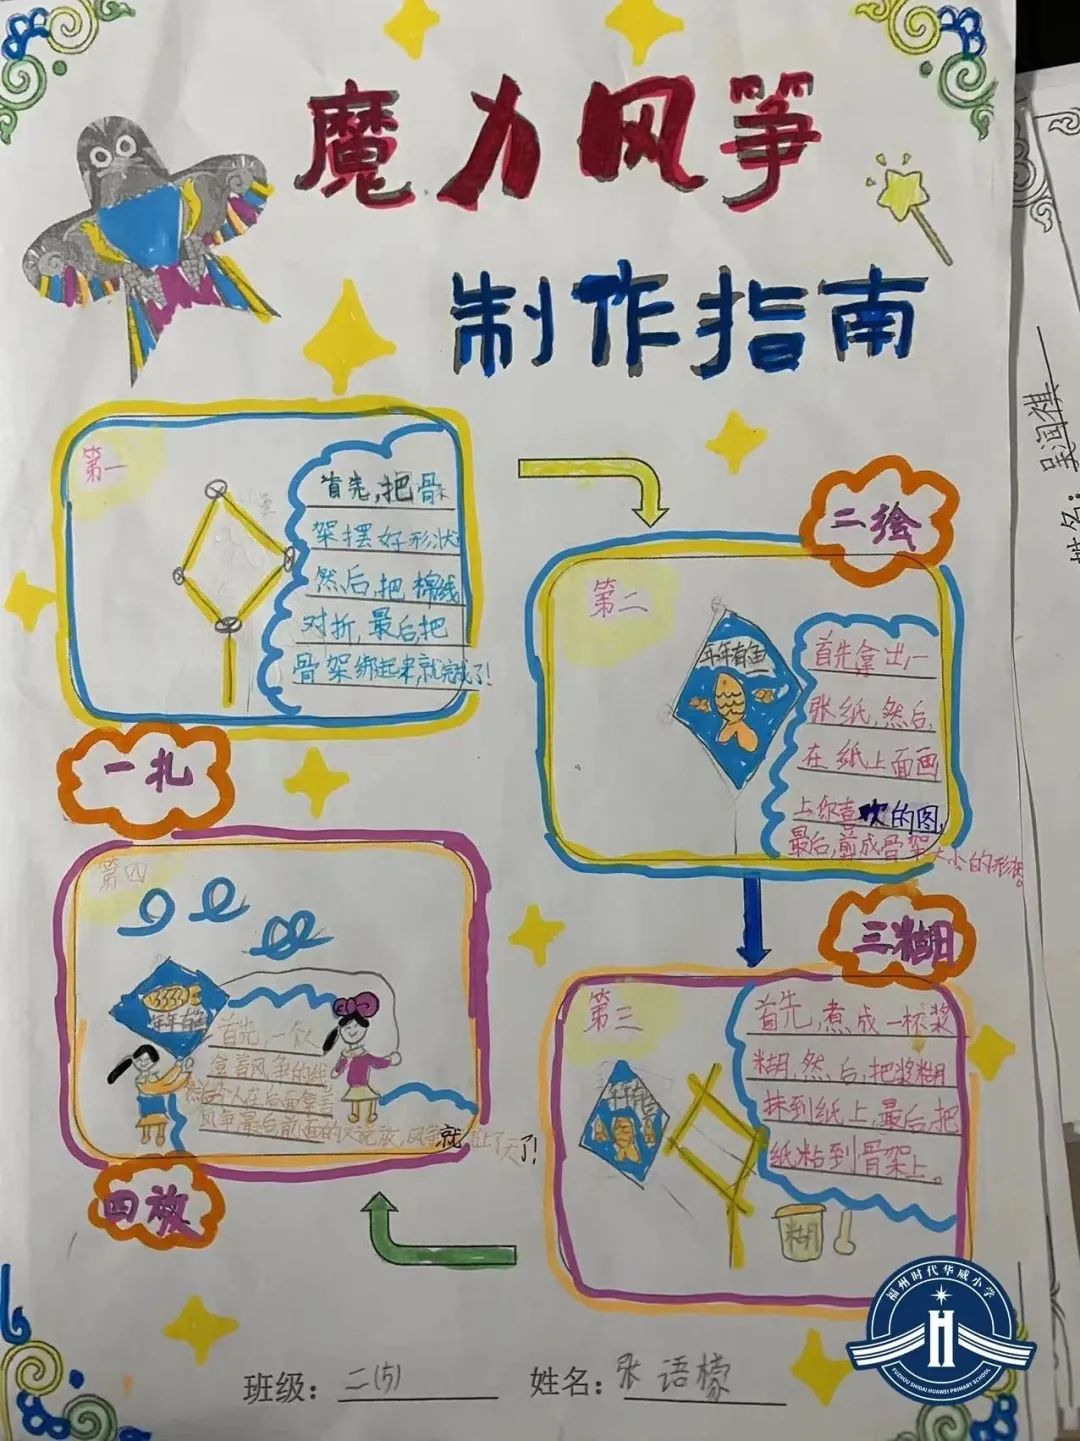 魔力风筝
制作指南
第一
首先,把骨
架摆好形状
然后,把棉线
对折,最后,把
骨架绑起来,就完成了!
一扎
二绘
第二
年年有鱼
首先拿出一
张纸,然后,
在纸上面画
上你喜欢的图,
最后,剪成骨架大小的形状。
三糊
第三
年年有鱼
首先,煮成一杯浆
糊,然后,把浆糊
抹到纸上,最后,把
纸粘到骨架上。
糊
第四
年年有鱼
首先,一个人
拿着风筝的线
然后一人在后面拿着
风筝,最后前面的人 放,风筝就 上了天了!
四放
班级:二(5)
姓名:张语檬
福州时代华威小学
FUZHOU SHIDAI HUAWEI PRIMARY SCHOOL
姓名:吴润祺